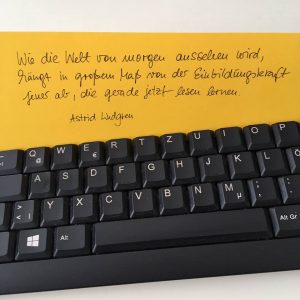 Wie die Welt von morgen aussehen wird,
hängt in großem Maß von der Einbildungskraft
jener ab, die gerade jetzt lesen lernen.
Astrid Lindgren
Q W E R T Z U I O P
@ €
A S D F G H J K L Ö
> < | Y X C V B N M µ ; , : .
Alt Alt Gr